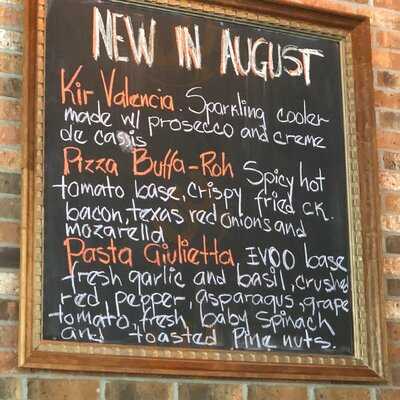 NEW IN AUGUST
Kir Valencia. Sparkling cooler
made w/ prosecco and creme
de cassis
Pizza Buffa-Roh Spicy hot
tomato base, crispy fried ck.
bacon, texas red onions and
mozarella
Pasta Giulietta, EVOO base
fresh garlic and basil, crushed
red pepper, asparagus, grape
tomato, fresh baby spinach
and toasted pine nuts.